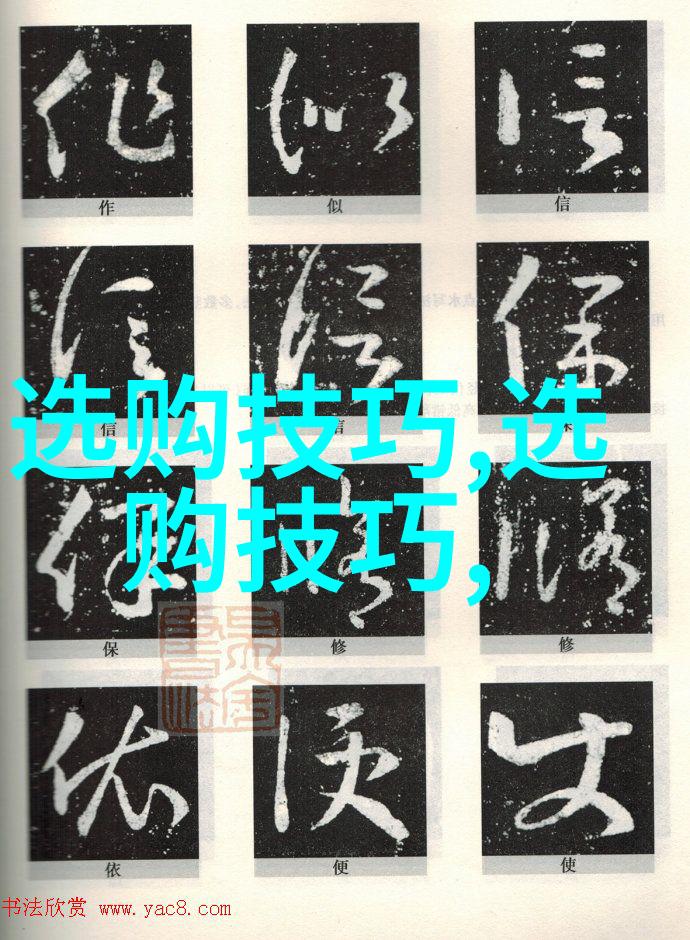 作 似 信
信 信 保
选购技巧,选
购技巧,
保 修 修
依 便 使
书法欣赏 www.yac8.com